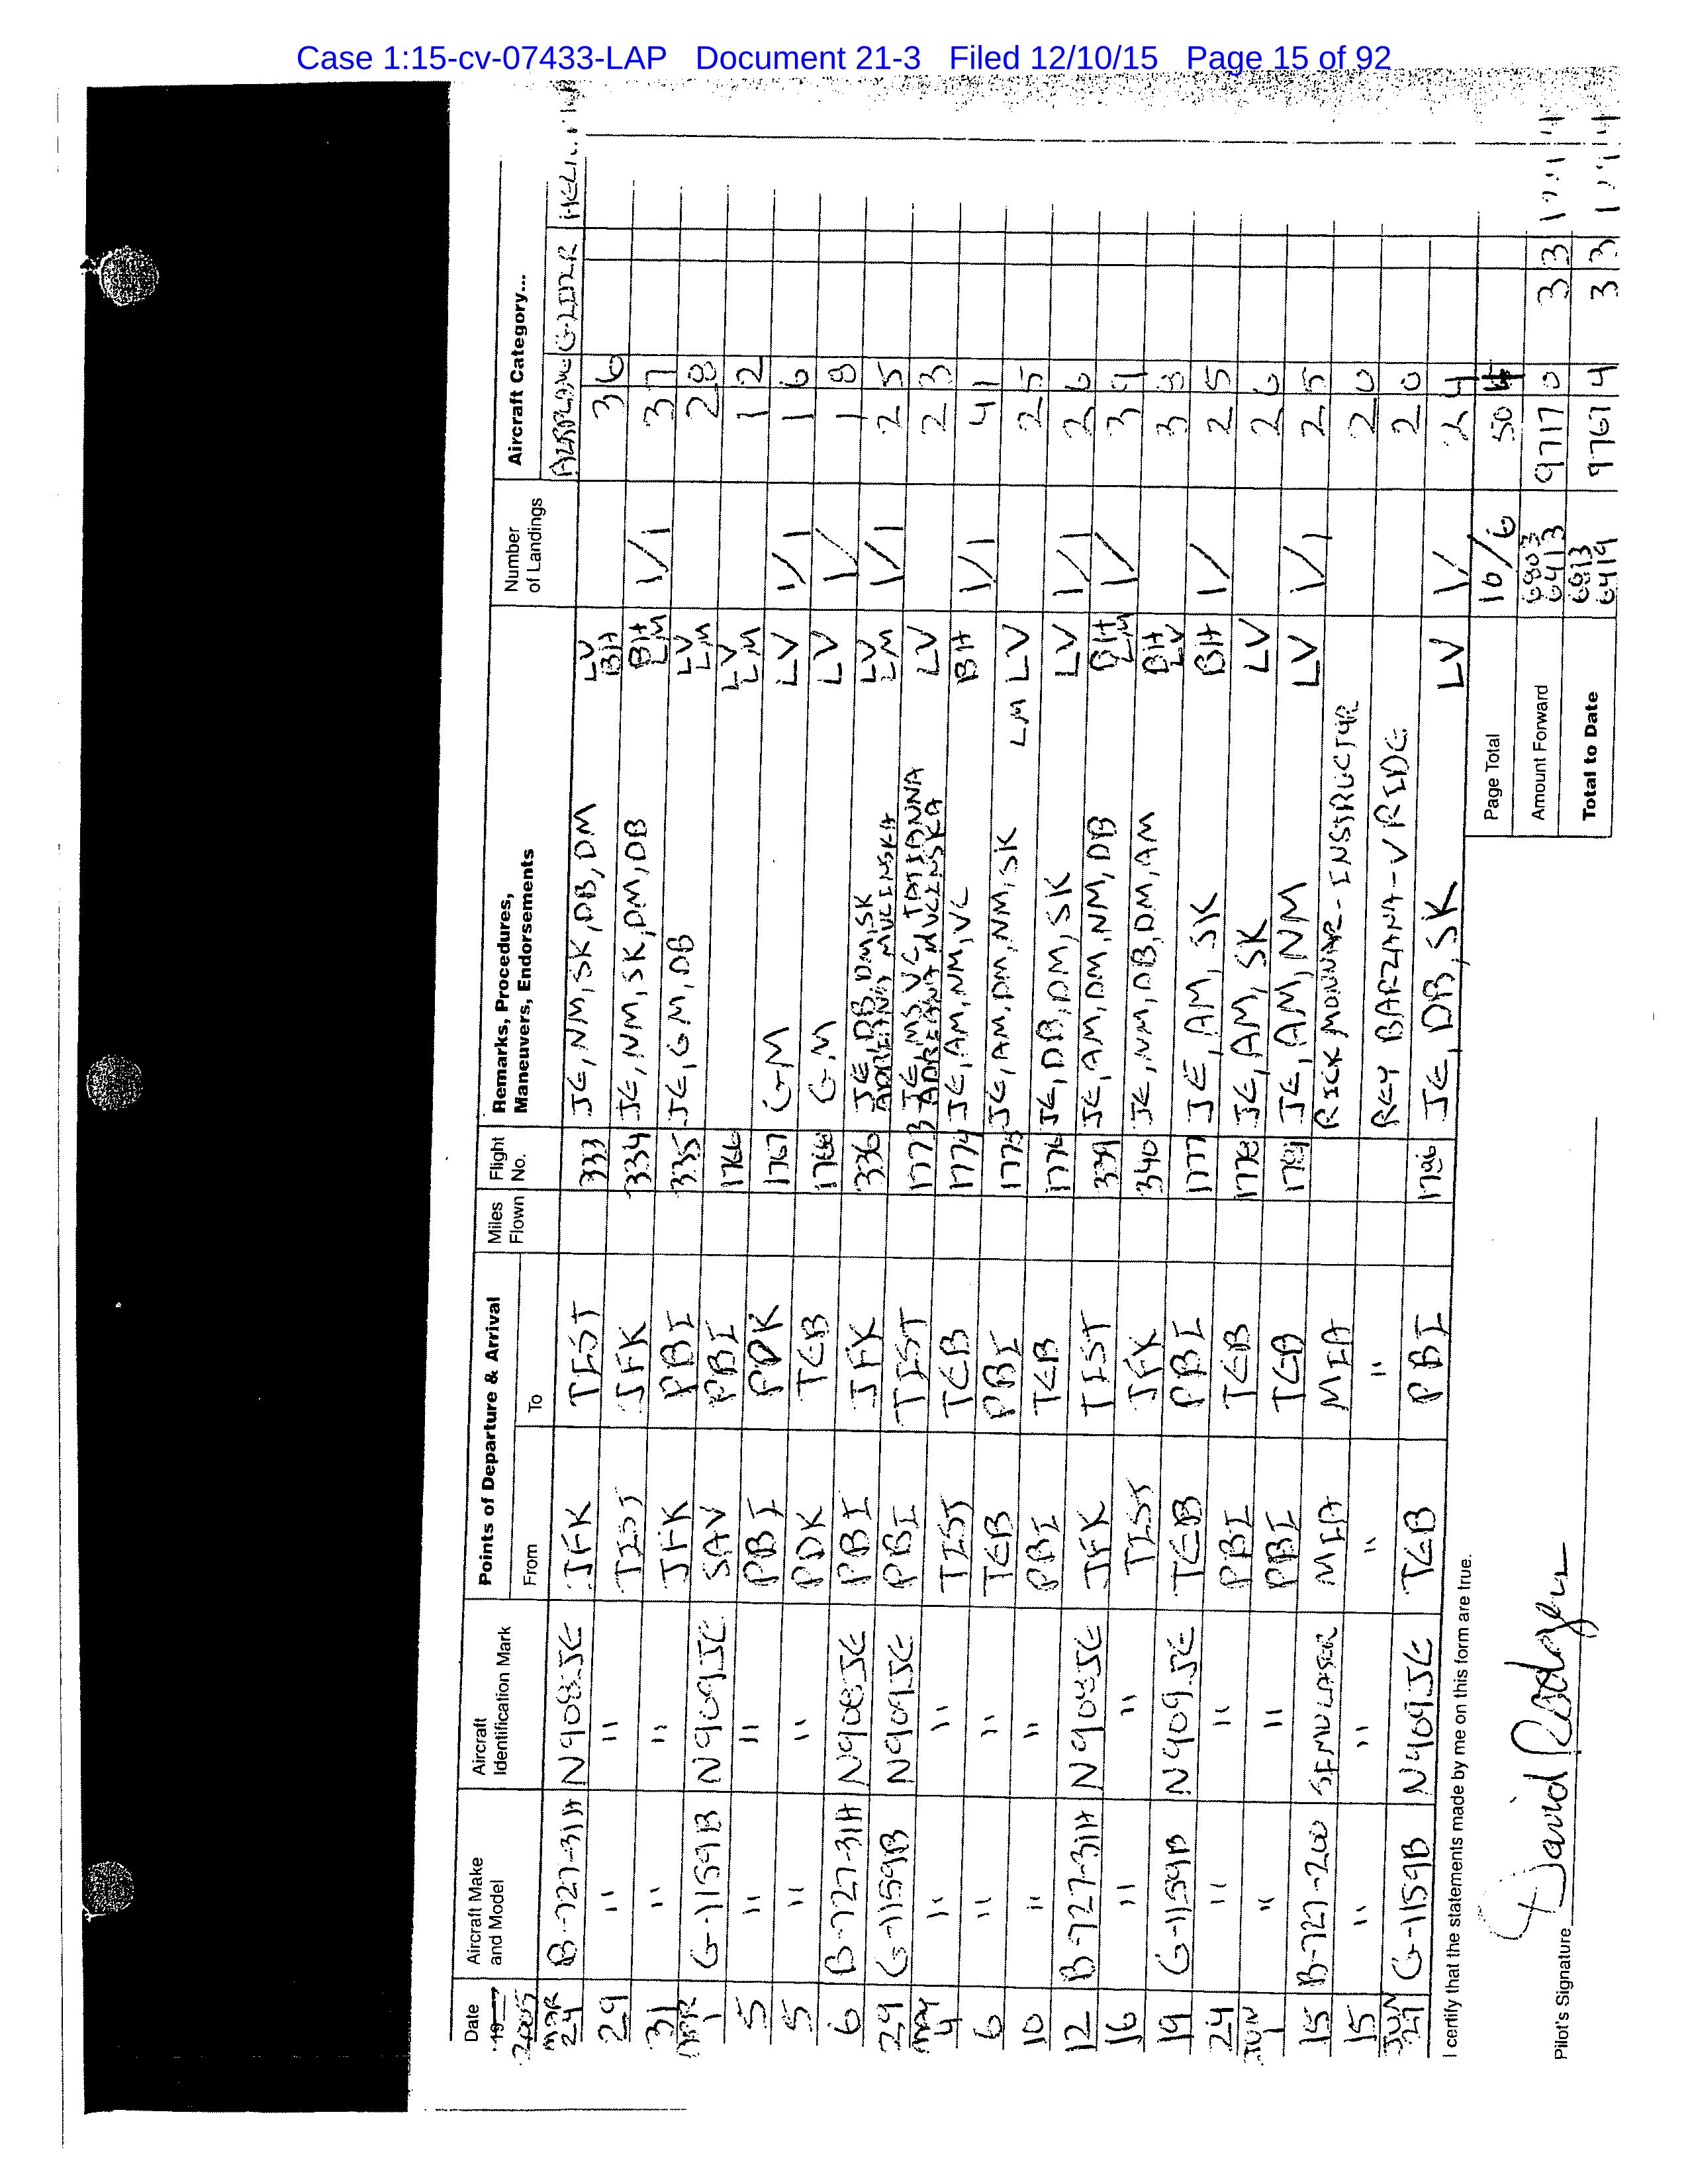 Case 1:15-cv-07433-LAP Document 21-3 Filed 12/10/15 Page 15 of 92
Date Aircraft Make and Model Aircraft Identification Mark Points of Departure & Arrival Miles Flown Flight No. Remarks, Procedures, Maneuvers, Endorsements Number of Landings Aircraft Category...
19 2005 From To AIRPLANE GLIDER
MAR 24 B-727-31H N908JE JFK TIST 333 JE, NM, SK, DB, DM LV BH 3 6
29 " " TIST JFK 334 JE, NM, SK, DM, DB BH LM 1/1 3 7
31 " " JFK PBI 335 JE, GM, DB LV LM 2 8
APR 1 G-1159B N909JE SAV PBI 1766 LV LM 1 2
5 " " PBI PDK 1767 GM LV 1/1 1 6
5 " " PDK TEB 1768 GM LV 1/ 1 8
6 B-727-31H N908JE PBI JFK 336 JE, DB, DM, SK LV LM 1/1 2 5
29 G-1159B N909JE PBI TIST 1773 JE, MS, VC, TATIANNA ADRIANA MUCINSKA LV 2 3
MAY 4 " " TIST TEB 1774 JE, AM, NM, VC BH 1/1 4 1
6 " " TEB PBI 1775 JE, AM, DM, NM, SK LM LV 2 5
10 " " PBI TEB 1776 JE, DB, DM, SK LV 1/1 2 6
12 B-727-31H N908JE JFK TIST 339 JE, AM, DM, NM, DB BH LM 1/ 3 9
16 " " TIST JFK 340 JE, NM, DB, DM, AM BH LV 3 8
19 G-1159B N909JE TEB PBI 1777 JE, AM, SK BH 1/ 2 5
24 " " PBI TEB 1778 JE, AM, SK LV 2 6
JUN 1 " " PBI TEB 1781 JE, AM, NM LV 1/1 2 5
15 B-727-200 SIMULATOR MIA MIA RICK MONNAR - INSTRUCTOR 2 0
15 " " " " REY BARZANA - V RIDE 2 0
JUN 29 G-1159B N909JE TEB PBI 1786 JE, DB, SK LV 1/ 2 4
I certify that the statements made by me on this form are true.
Page Total 10/6 50 4
Amount Forward 6803 6413 9717 0 3 3
Total to Date 6813 6419 9767 4 3 3
Pilot's Signature David Rodgers